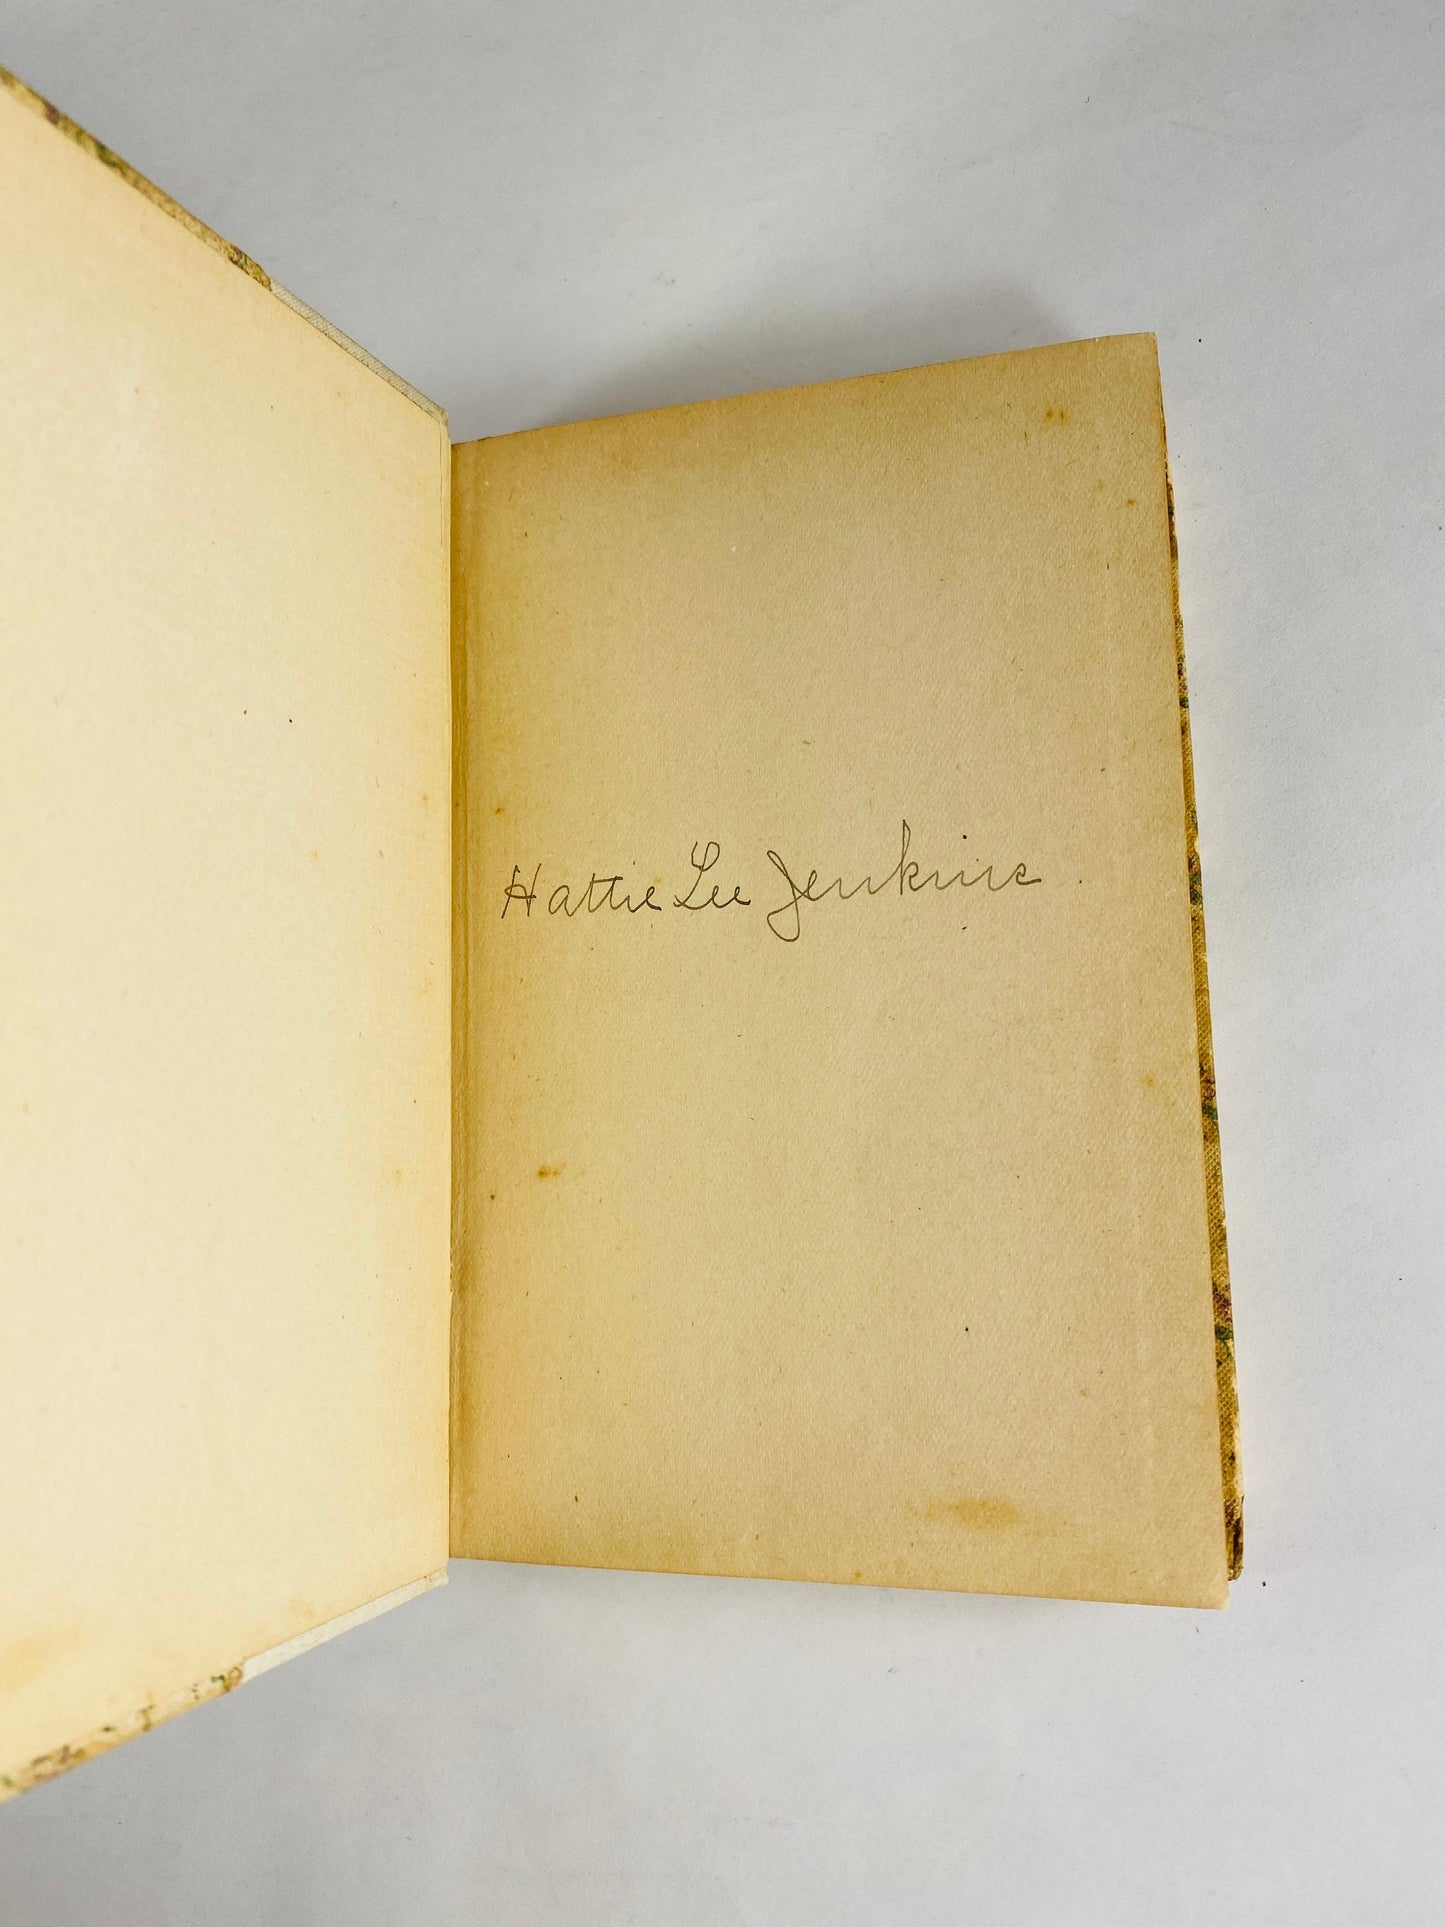 Hattie Lee Jenkins